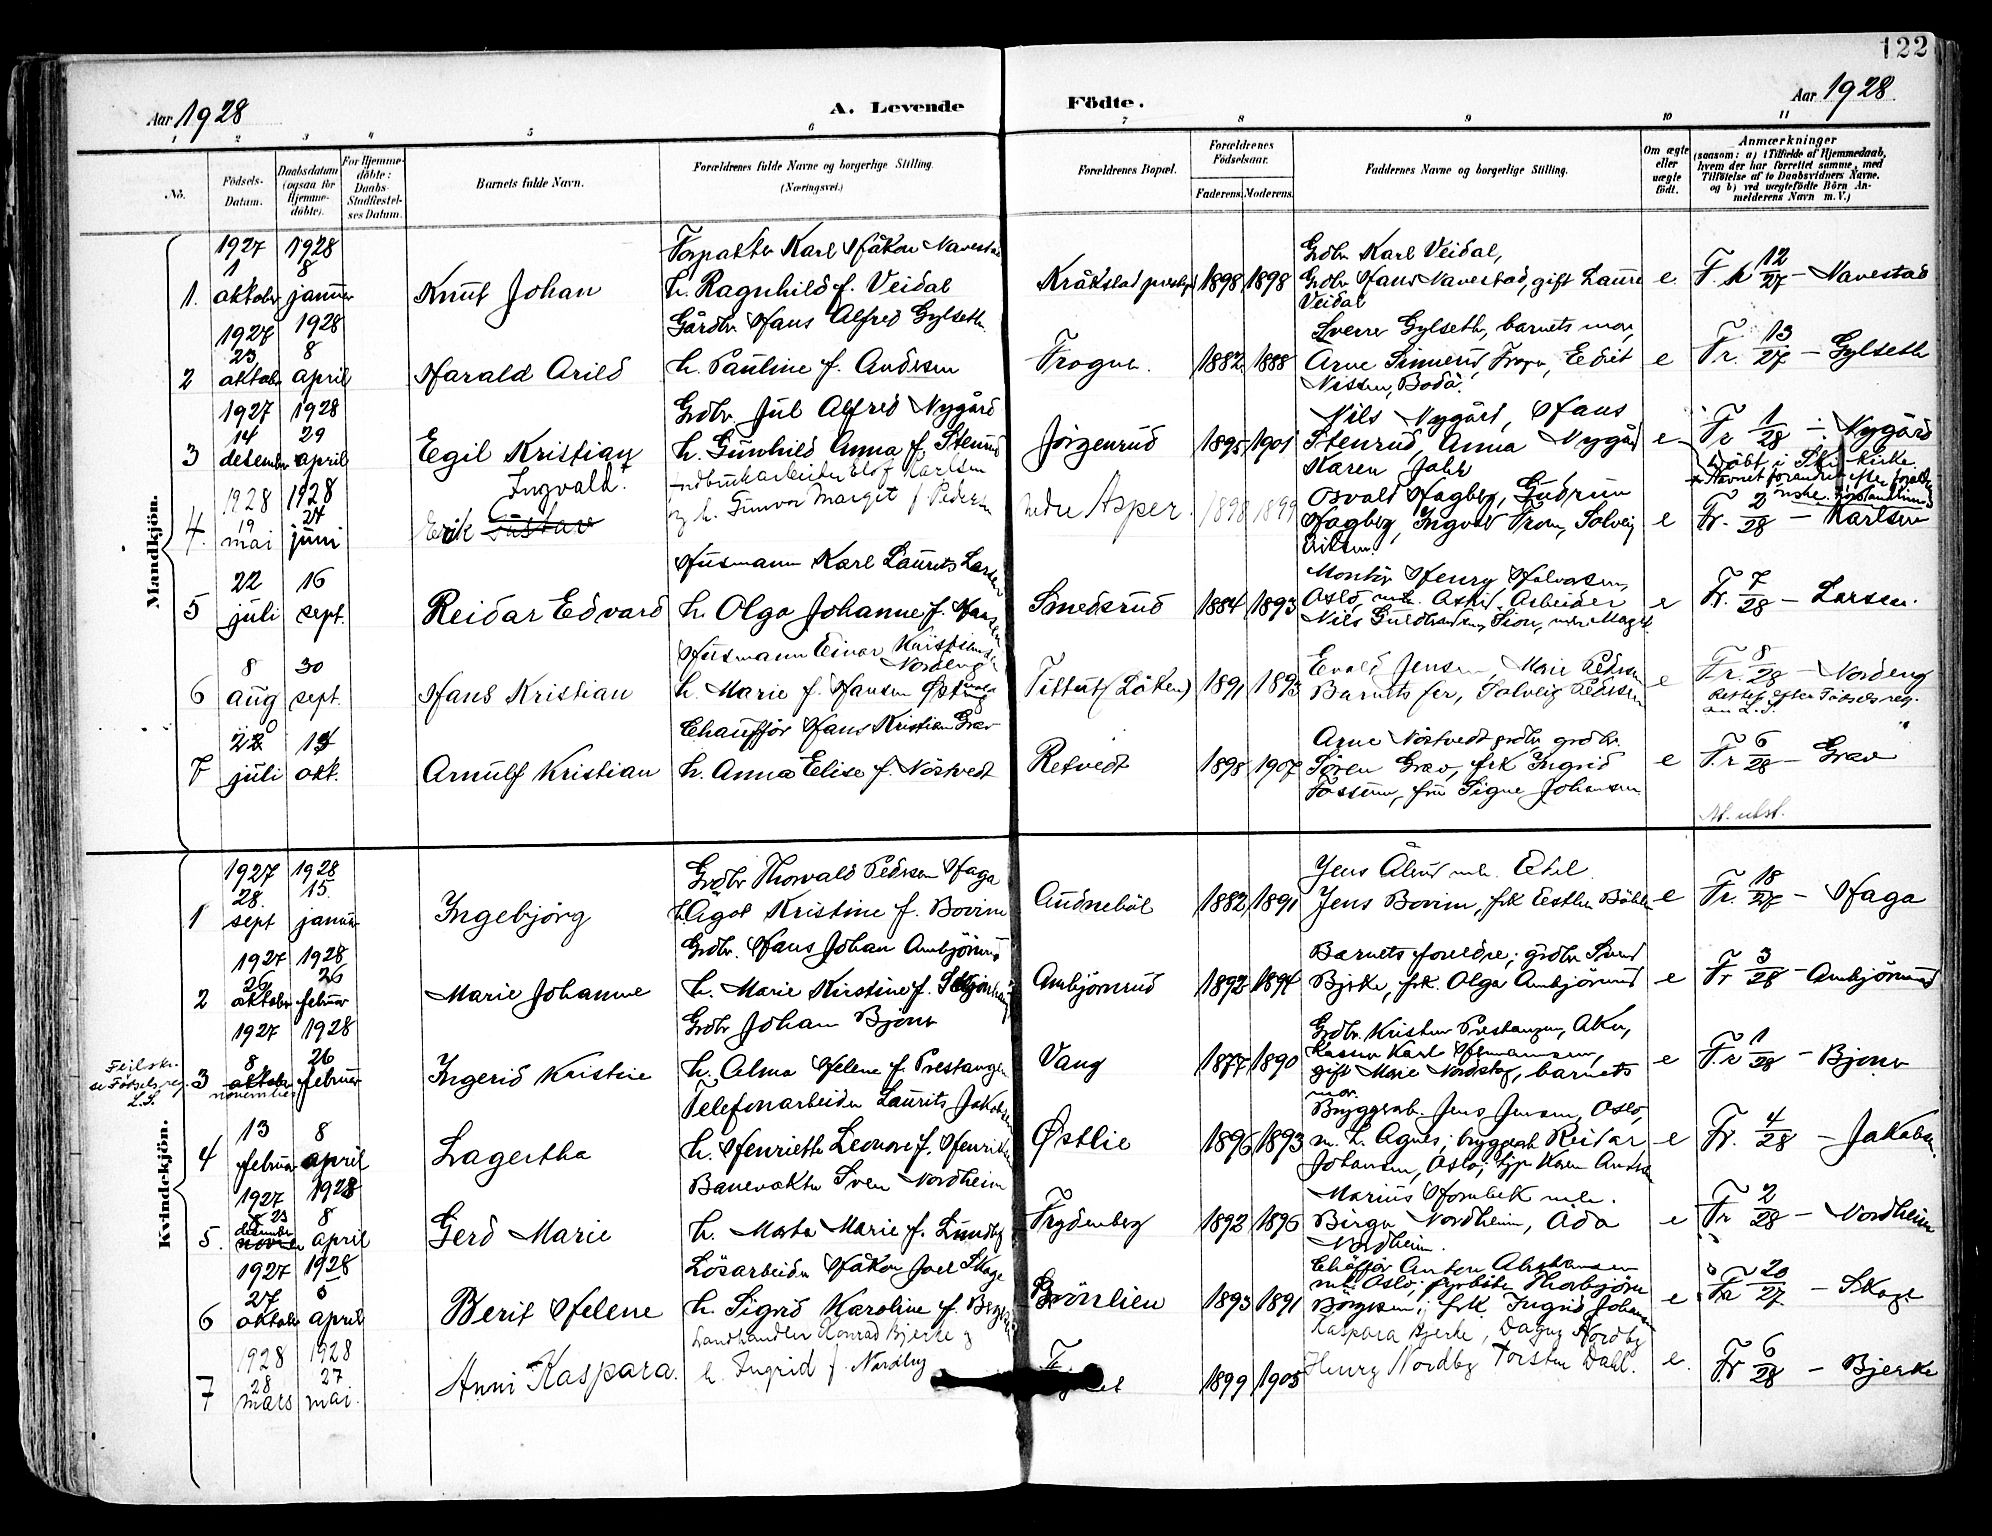 122
Aar 1928
A. Levende
Födte.
Aar 1928
1 2 3 4 5 6 7 8 9 10 11
No.
Födsels-Datum.
Daabsdatum (ogsaa for Hjemme-döbte).
For Hjemme-döbte: Daabs-Stadfæstel-ses Datum.
Barnets fulde Navn.
Forældrenes fulde Navne og borgerlige Stilling. (Næringsvei.)
Forældrenes Bopæl.
Forældrenes Födselsaar.
Faderens. Moderens.
Faddernes Navne og borgerlige Stilling.
Om ægte eller uægte födt.
Anmærkninger
(saasom: a) i Tilfælde af Hjemmedaab, hvem der har forrettet samme, med Tilföielse af to Daabsvidners Navne, og b) ved uægtefödte Börn An-melderens Navn m.V.)
Mandkjön.
1. 1927 1 oktober 1928 8 januar Knut Johan
Forpakter Karl Håkon Navestad
h. Ragnhild f. Veidal
Kråkstad prestegd 1898 1898
Grdbr Karl Veidal,
Grdbr Hans Navestad, gift Laura
Veidal
e. 12/27 - Navestad
2 1927 23 oktober 1928 8 april Harald Arild
Gårdbr Hans Alfred Gylseth
h. Pauline f. Andersen
Frogner 1882 1888
Sverre Gylseth, barnets mor,
Arne Simensen, Frogn, Edit
Nissen, Bodö.
e Fr. 13/27 - Gylseth
3 1927 14 desember 1928 29 april Egil Kristian
Ingvald.
Grdbr. Jul Alfred Nygård
h. Gunhild Anna f. Stenrud
Jörgenrud 1895 1901
Nils Nygård, Hans
Stenrud, Anna Nygård
Karen Jahr
e Fr 1/28 - Nygård
Döbt i Ski kirke.
Navnet forandret efter foreldrenes
4. 1928 19 mai 1928 24 juni Erik Gustav
h. Gunvor Margit f. Pedersen
nedre Asper. 1898 1899
Osvald Hagberg, Gudrun
Hagberg, Ingvald From, Solveig
e Fr. 2/28 - Karlsen
5 22 juli 16 sept. Reidar Edvard
Husmann Karl Laurits Larsen
h. Olga Johanne f. Hansen
Smedsrud 1884 1893
Montör Henry Halvorsen,
Oslo, Arbeider
e Fr. 7/28 - Larsen.
6 8 aug 30 sept. Hans Kristian
Husmann Einar Kristiansen
Nordeng
h. Marie f. Hansen
Tittut (Löken) 1891 1893
Evald Jensen, Marie Pedersen
Barnets far, Solveig Pedersen
e Fr. 8/28 - Nordeng
Rettet efter Födselsreg.
L.S.
7 22 juli 14 okt. Arnulf Kristian
Chauffør Hans Kristian Grav
h. Anna Elise f. Nöstvedt
Retvedt 1898 1907
Arne Nöstvedt grdbr, grdbr.
Sören Grav, frk Ingrid
Fossum, fru Signe Johansen
e Fr 6/28 - Grav
At. utst.
Kvindekjön.
1 1927 28. sept 1928 15. januar Ingebjörg
Grdbr Thorvald Pedersen Haga
h. Agot Kristine f. Bovim
Audnebøl 1882 1891
Jens Bovim, frk Esther
e Fr. 18/27 - Haga
2 1927 26 oktober 1928 26 februar Marie Johanne
Grdbr. Hans Johan Ambjörnrud
h. Marie Kirstine f.
Ambjörnrud 1892 1894
Barnets foreldre; grdbr Svend
Bjerke, frk. Olga Ambjörnrud
e Fr 3/28 - Ambjörnrud
Feilskr.
se Födselsreg
L.S.
3 1927 8 oktober november 1928 26 februar Ingerid Kristine
Grdbr Johan Bjone
h. Alma Helene f. Prestangen
Vang 1877 1890
Grdbr. Kristian Prestangen, Aker,
Kasser Karl Hermansen,
gift Marie Nordstog, barnets
mor.
e Fr 1/28 - Bjone
4 13 februar 8 april Lagertha
Telefonarbeider Laurits Jakobsen
h. Henriette Leonore f. Henriksen
Østlie 1896 1893
Byggearb. Jens Jensen, Oslo,
m. h. Agnes; byggearb Reidar
Johansen, Oslo;
e Fr. 4/28 - Jakobsen.
5. 1927 8 23 desember 1928 8 april Gerd Marie
Banevokter Sven Nordheim
h. Marta Marie f. Lundby
Frydenberg 1892 1895
Marius Hornbek
Birger Nordheim, Ada
Nordheim.
e Fr 2/28 - Nordheim
6 1927 27 oktober 1928 8 april Berit Helene
Lösarbeider Håkon Joel Skage
h. Sigrid Karoline f.
Grönlien 1893 1891
Chåffør Anton Abrahamsen
Oslo; fyrböter Thorbjörn
Börgesen; frk Ingrid Johansen
e Fr 20/27 - Skage
7 1928 28 mars 1928 27 mai. Anni Kaspara.
Landhandler Konrad Bjerke og
h. Ingrid f. Nordby
1899 1905
Kaspara Bjerke, Dagny Nordby
Henry Nordby Torsten Dahl.
e. Fr 6/28 - Bjerke